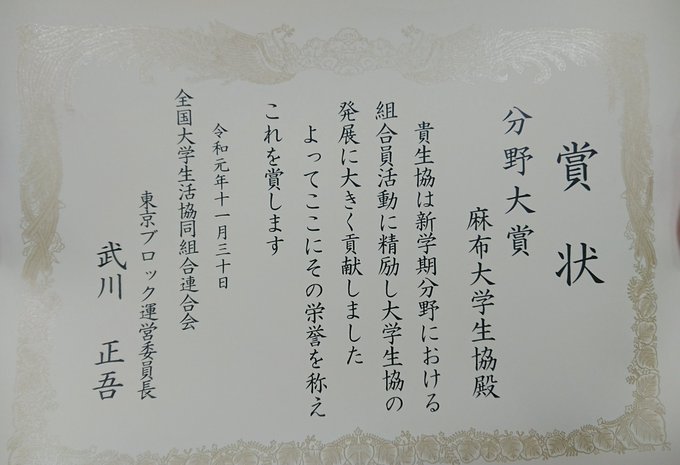 賞状
分野大賞
麻布大学生協殿
貴生協は新学期分野における
組合員活動に精励し大学生協の
発展に大きく貢献しました
よってここにその栄誉を称え
これを賞します
令和元年十一月三十日
全国大学生活協同組合連合会
東京ブロック運営委員長
武川 正吾